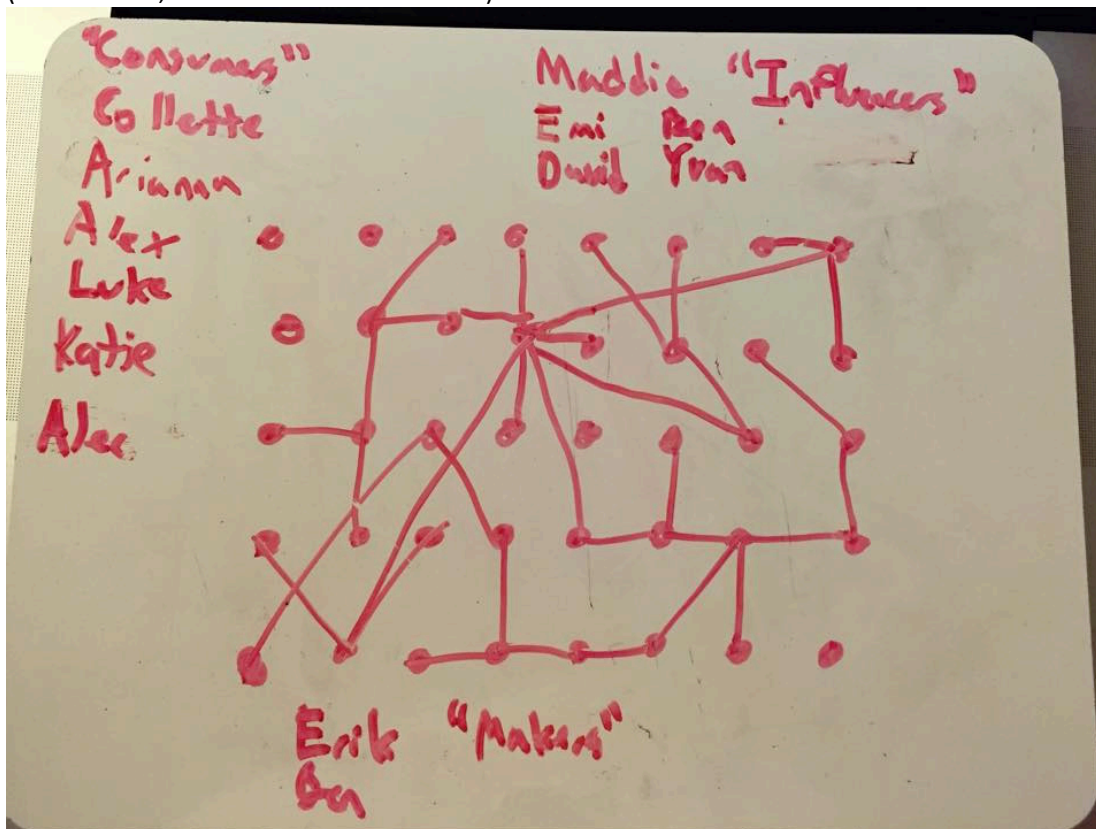 "Consumers"
Collette
Arianna
Alex
Luke
Katie
Alec
Maddie "Influencers"
Emi Ben
David Yvan
Erik "Makers"
Ben